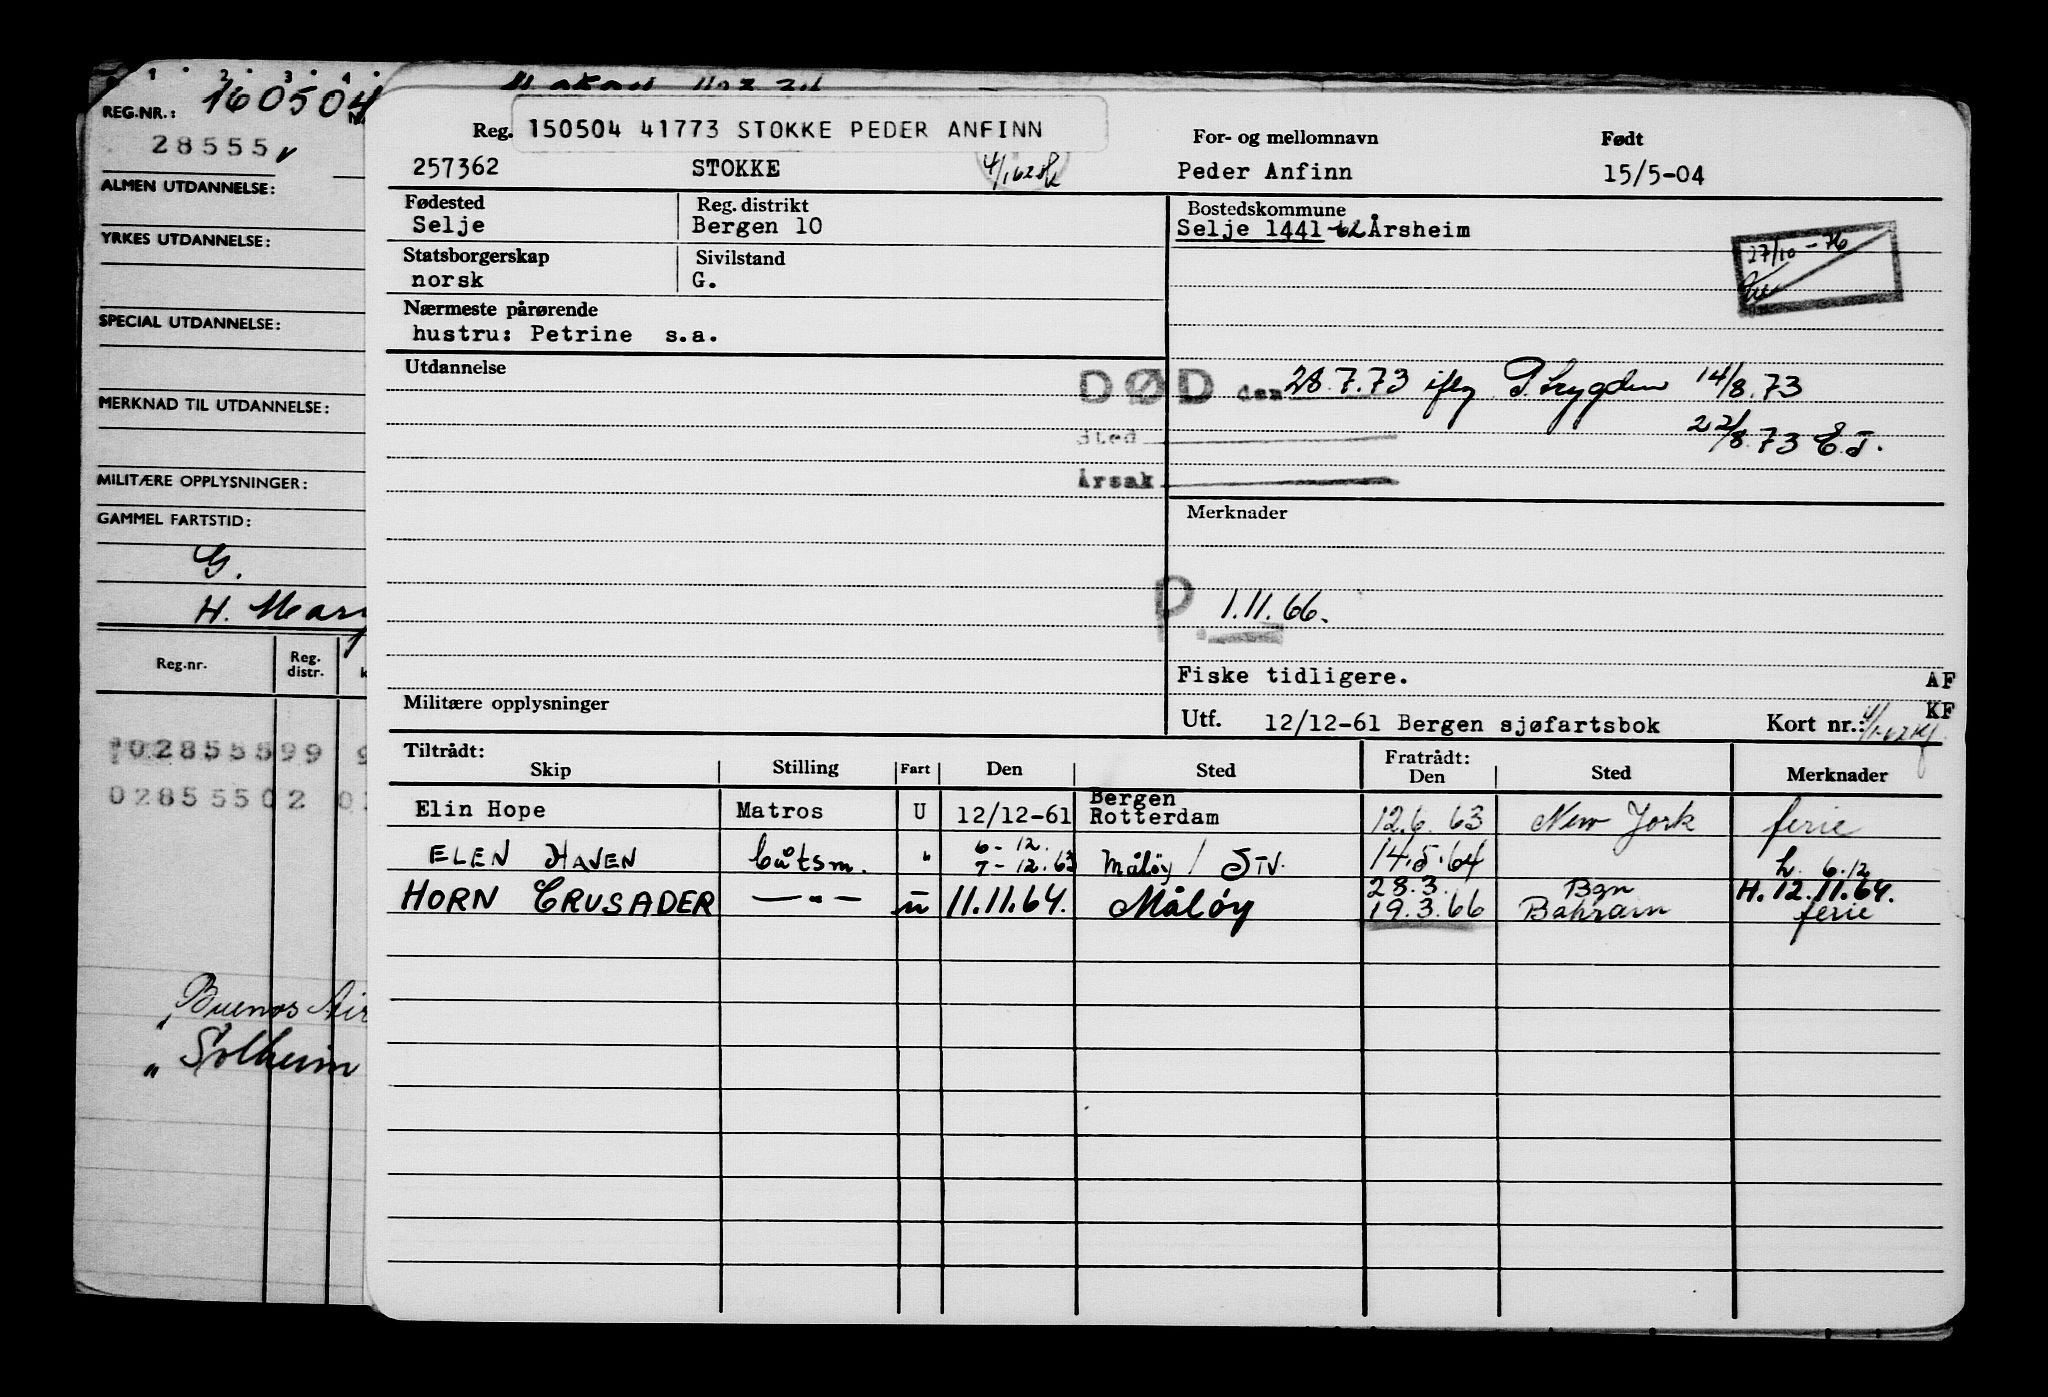 1 2 3 4
REG.NR.: 160504
28555
ALMEN UTDANNELSE:
YRKES UTDANNELSE:
SPECIAL UTDANNELSE:
MERKNAD TIL UTDANNELSE:
MILITÆRE OPPLYSNINGER:
GAMMEL FARTSTID:
G.
H.
Reg.nr. Reg. distr.
02855502
Buenos
" Solheim
Reg. 150504 41773 STOKKE PEDER ANFINN For- og mellomnavn Født
257362 STOKKE Peder Anfinn 15/5-04
Fødested Reg. distrikt Bostedskommune
Selje Bergen 10 Selje 1441-62 Årsheim
Statsborgerskap Sivilstand 27/10-76
norsk G.
Nærmeste pårørende
hustru: Petrine s.a.
Utdannelse
DØD den 28.7.73 iflg P.trygden 14/8.73
Sted 22/8.73 E.J.
Årsak
Merknader
P. 1.11.66.
Fiske tidligere. AF
Militære opplysninger KF
Utf. 12/12-61 Bergen sjøfartsbok Kort nr.:
Tiltrådt: Fratrådt:
Skip Stilling Fart Den Sted Den Sted Merknader
Elin Hope Matros U 12/12-61 Bergen Rotterdam 12.6.63 New York ferie
ELEN HAVEN båtsm. " 6-12. 7-12.63 Måløy / STV. 14.5.64 h. 6.12
HORN CRUSADER —"— u 11.11.64. Måløy 28.3. 19.3.66 Bgn Bahrain H.12.11.64. ferie